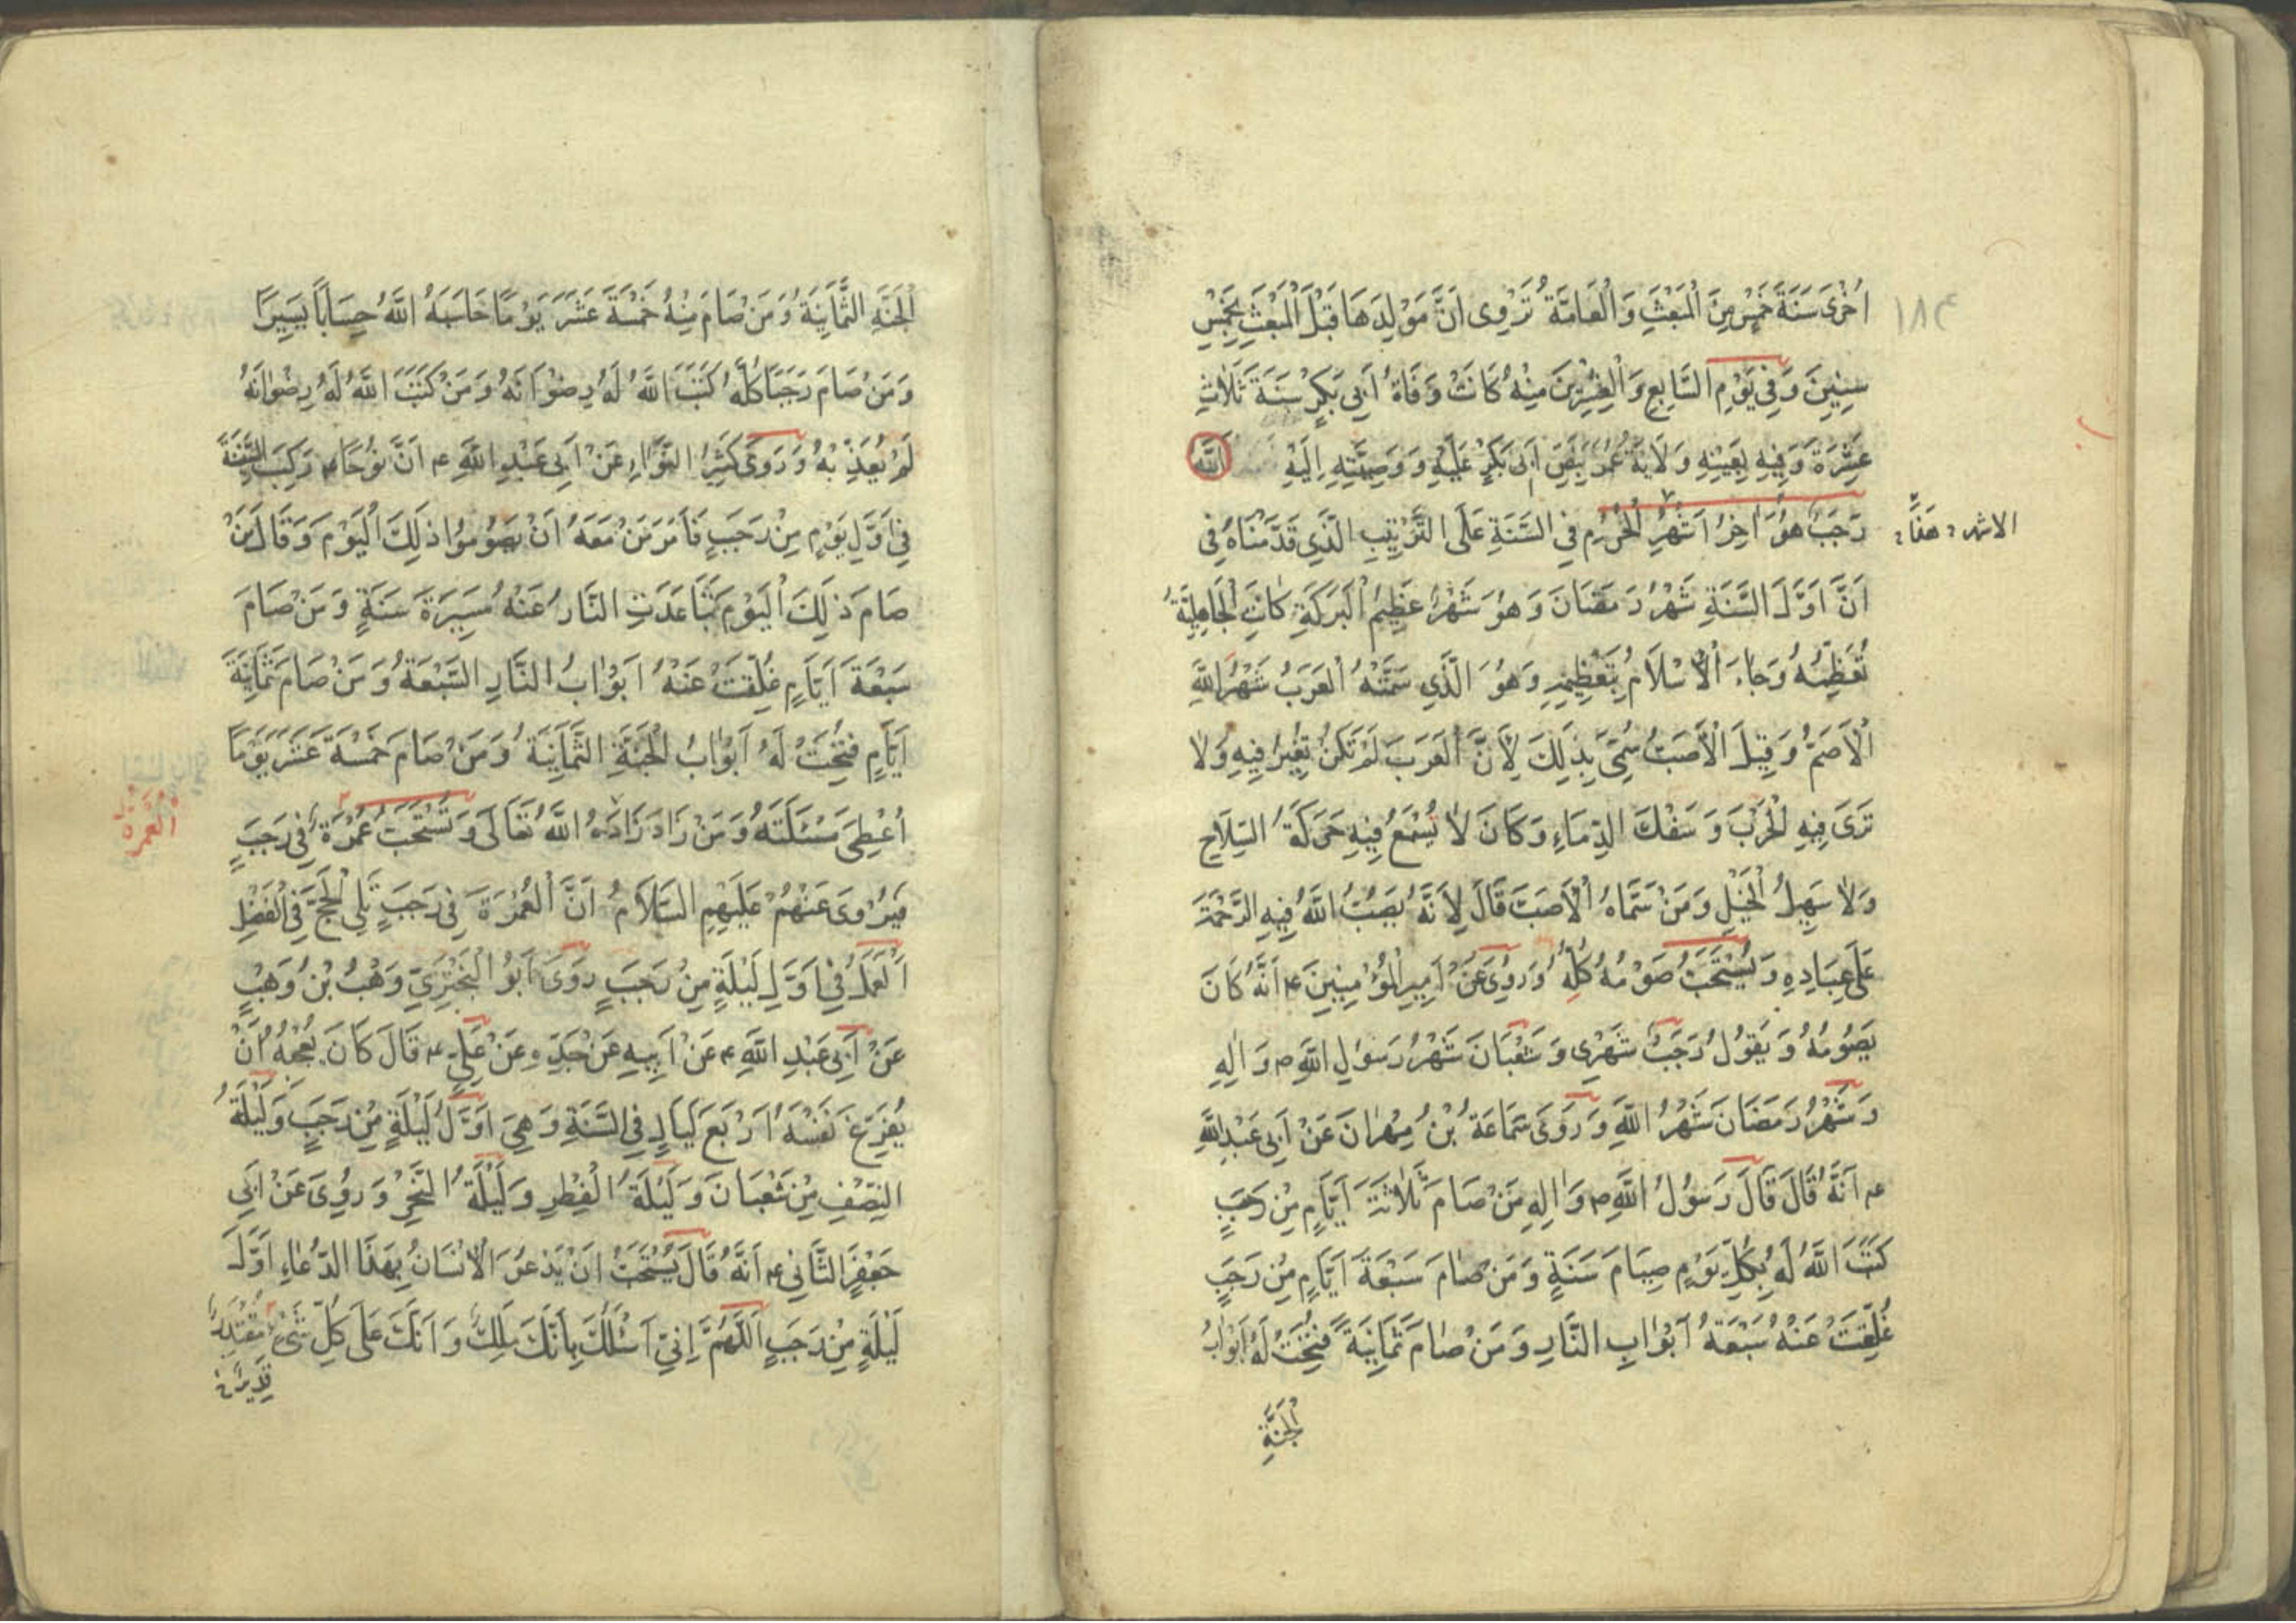 اُخْرىٰ سَنَةَ خَمْسٍ مِنَ الْمَبْعَثِ وَالْعَامَّةُ تَرْوِى اَنَّ مَوْلِدَهَا قَبْلَ الْمَبْعَثِ بِخَمْسِ
سِنِينَ وَفِى يَوْمِ السَّابِعِ وَالْعِشْرِينَ مِنْهُ كَانَتْ وَفَاةُ اَبِى بَكْرٍ سَنَةَ ثَلاٰثِ
عَشْرَةَ وَفِيهِ بِعَيْنِهِ وَلَايَةُ عُمَرَ بِنَصِّ اَبِى بَكْرٍ عَلَيْهِ وَوَصِيَّتِهِ اِلَيْهِ اللّٰه
رَجَبٌ هُوَ اٰخِرُ اَشْهُرِ الْحُرُمِ فِى السَّنَةِ عَلَى التَّرْتِيبِ الَّذِي قَدَّمْنَاهُ فِى
الاشهر
اَنَّ اَوَّلَ السَّنَةِ شَهْرُ رَمَضَانَ وَهُوَ شَهْرٌ عَظِيمُ الْبَرَكَةِ كَانَتِ الْجَاهِلِيَّةُ
تُعَظِّمُهُ وَجَاءَ الْاِسْلَامُ بِتَعْظِيمِهِ وَهُوَ الَّذِي سَمَّتْهُ الْعَرَبُ شَهْرُ اللّٰهِ
الْاَصَمُّ وَقِيلَ الْاَصَبُّ سُمِّىَ بِذَلِكَ لِاَنَّ الْعَرَبَ لَمْ تَكُنْ تُغِيرُ فِيهِ وَلاٰ
تَرَى فِيهِ الْحَرْبَ وَسَفْكَ الدِّمَاءِ وَكَانَ لاٰ يُسْمَعُ فِيهِ حَرَكَةُ السِّلَاحِ
وَلاٰ سَهِيلُ الْخَيْلِ وَمَنْ سَمَّاهُ الْاَصَبَّ قَالَ لِاَنَّهُ يَصُبُّ اللّٰهُ فِيهِ الرَّحْمَةَ
عَلَى عِبَادِهِ وَيُسْتَحَبُّ صَوْمُهُ كُلِّهُ وَرُوِىَ عَنْ اَمِيرِ الْمُؤْمِنِينَ ع اَنَّهُ كَانَ
يَصُومُهُ وَيَقُولُ رَجَبٌ شَهْرِى وَشَعْبَانَ شَهْرُ رَسُولِ اللّٰهِ ص وَاٰلِهِ
وَشَهْرُ رَمَضَانَ شَهْرُ اللّٰهِ وَرَوَىٰ سَمَاعَةُ بْنُ مِهْرَانَ عَنْ اَبِى عَبْدِ اللّٰهِ
ع اَنَّهُ قَالَ قَالَ رَسُولُ اللّٰهِ ص وَاٰلِهِ مَنْ صَامَ ثَلَاثَةَ اَيَّامٍ مِنْ رَجَبٍ
كَتَبَ اللّٰهُ لَهُ بِكُلِّ يَوْمٍ صِيَامَ سَنَةٍ وَمَنْ صَامَ سَبْعَةَ اَيَّامٍ مِنْ رَجَبٍ
غُلِّقَتْ عَنْهُ سَبْعَةُ اَبْوَابِ النَّارِ وَمَنْ صٰامَ ثَمَانِيَةً فُتِحَتْ لَهُ اَبْوٰابُ
الْجَنَّةِ
الْجَنَّةِ الثَّمَانِيَةُ وَمَنْ صَامَ مِنْهُ خَمْسَةَ عَشَرَ يَوْمًا حَاسَبَهُ اللّٰهُ حِسَابًا يَسِيرًا
وَمَنْ صَامَ رَجَبًا كُلَّهُ كَتَبَ اللّٰهُ لَهُ رِضْوَانَهُ وَمَنْ كَتَبَ اللّٰهُ لَهُ رِضْوٰانَهُ
لَمْ يُعَذِّبْهُ وَرَوَىٰ كَثِيرُ النَّوَّاءِ عَنْ اَبِى عَبْدِ اللّٰهِ ع اَنَّ نُوحًا ع رَكِبَ السَّفِينَةَ
فِى اَوَّلِ يَوْمٍ مِنْ رَجَبٍ فَاَمَرَ مَنْ مَعَهُ اَنْ يَصُومُوا ذٰلِكَ الْيَوْمَ وَقَالَ مَنْ
صَامَ ذٰلِكَ الْيَوْمَ تَبَاعَدَتِ النَّارُ عَنْهُ مَسِيرَةَ سَنَةٍ وَمَنْ صَامَ
سَبْعَةَ اَيَّامٍ غُلِّقَتْ عَنْهُ اَبْوٰابُ النَّارِ السَّبْعَةُ وَمَنْ صَامَ ثَمَانِيَةَ
اَيَّامٍ فُتِحَتْ لَهُ اَبْوٰابُ الْجَنَّةِ الثَّمَانِيَةُ وَمَنْ صَامَ خَمْسَةَ عَشَرَ يَوْمًا
اُعْطِىَ مَسْئَلَتَهُ وَمَنْ زَادَ زَادَهُ اللّٰهُ تَعَالَى وَتُسْتَحَبُّ عُمْرَةٌ فِى رَجَبٍ
الْعُمْرَة
فَيُرْوىٰ عَنْهُمْ عَلَيْهِمِ السَّلَامُ اَنَّ الْعُمْرَةَ فِى رَجَبٍ تَلِى الْحَجَّ فِى الْفَضْلِ
اَلْعَمَلُ فِى اَوَّلِ لَيْلَةٍ مِنْ رَجَبٍ رَوَىٰ اَبُو الْبَخْتَرِىِّ وَهْبُ بْنُ وَهْبٍ
عَنْ اَبِى عَبْدِ اللّٰهِ ع عَنْ اَبِيهِ عَنْ جَدِّهِ عَنْ عَلِىٍّ ع قَالَ كَانَ يُعْجِبُهُ اَنْ
يُفَرِّغَ نَفْسَهُ اَرْبَعَ لَيَالٍ فِى السَّنَةِ وَهِىَ اَوَّلُ لَيْلَةٍ مِنْ رَجَبٍ وَلَيْلَةُ
النِّصْفِ مِنْ شَعْبَانَ وَلَيْلَةُ الْفِطْرِ وَلَيْلَةُ النَّحْرِ وَرُوِىَ عَنْ اَبِى
جَعْفَرٍ الثَّانِى ع اَنَّهُ قَالَ يُسْتَحَبُّ اَنْ يَدْعُوَ الْاِنْسَانُ بِهٰذَا الدُّعَاءِ اَوَّلَ
لَيْلَةٍ مِنْ رَجَبٍ اَللّٰهُمَّ اِنِّى اَسْئَلُكَ بِاَنَّكَ مَلِكٌ وَاَنَّكَ عَلَى كُلِّ شَىْءٍ مُقْتَدِرٌ
قَدِيرٌ